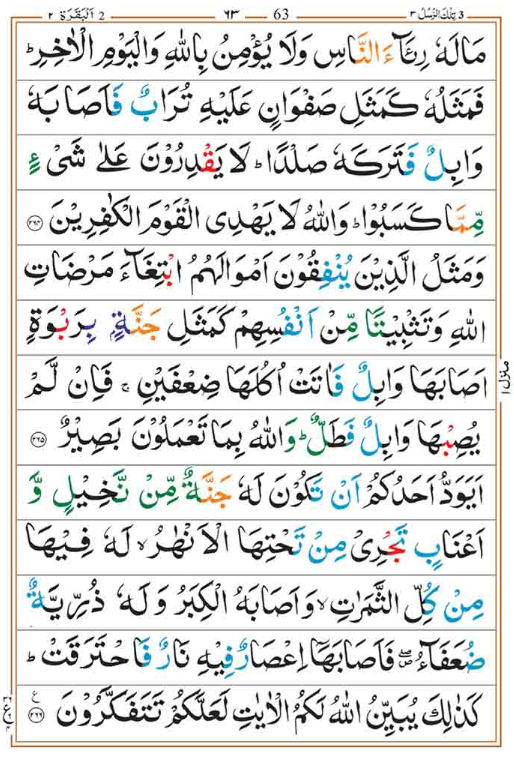 2 اَلْبَقَرَة ٢ ٦٣ 63 3 تِلْكَ الرُّسُلُ ٣
مَالَهٗ رِئَآءَ النَّاسِ وَلَا يُؤْمِنُ بِاللّٰهِ وَالْيَوْمِ الْاٰخِرِ ؕ
فَمَثَلُهٗ كَمَثَلِ صَفْوَانٍ عَلَيْهِ تُرَابٌ فَاَصَابَهٗ
وَابِلٌ فَتَرَكَهٗ صَلْدًا ؕ لَا يَقْدِرُوْنَ عَلٰى شَىْءٍ
مِّمَّا كَسَبُوْا ؕ وَاللّٰهُ لَا يَهْدِى الْقَوْمَ الْكٰفِرِيْنَ ۝٢٦٤
وَمَثَلُ الَّذِيْنَ يُنْفِقُوْنَ اَمْوَالَهُمُ ابْتِغَآءَ مَرْضَاتِ
اللّٰهِ وَتَثْبِيْتًا مِّنْ اَنْفُسِهِمْ كَمَثَلِ جَنَّةٍۭ بِرَبْوَةٍ
اَصَابَهَا وَابِلٌ فَاٰتَتْ اُكُلَهَا ضِعْفَيْنِ ۚ فَاِنْ لَّمْ
يُصِبْهَا وَابِلٌ فَطَلٌّ ؕ وَاللّٰهُ بِمَا تَعْمَلُوْنَ بَصِيْرٌ ۝٢٦٥
اَيَوَدُّ اَحَدُكُمْ اَنْ تَكُوْنَ لَهٗ جَنَّةٌ مِّنْ نَّخِيْلٍ وَّ
اَعْنَابٍ تَجْرِىْ مِنْ تَحْتِهَا الْاَنْهٰرُ ۙ لَهٗ فِيْهَا
مِنْ كُلِّ الثَّمَرٰتِ ۙ وَاَصَابَهُ الْكِبَرُ وَلَهٗ ذُرِّيَّةٌ
ضُعَفَآءُ ۖ فَاَصَابَهَاۤ اِعْصَارٌ فِيْهِ نَارٌ فَاحْتَرَقَتْ ؕ
كَذٰلِكَ يُبَيِّنُ اللّٰهُ لَكُمُ الْاٰيٰتِ لَعَلَّكُمْ تَتَفَكَّرُوْنَ ۝٢٦٦
منزل ١